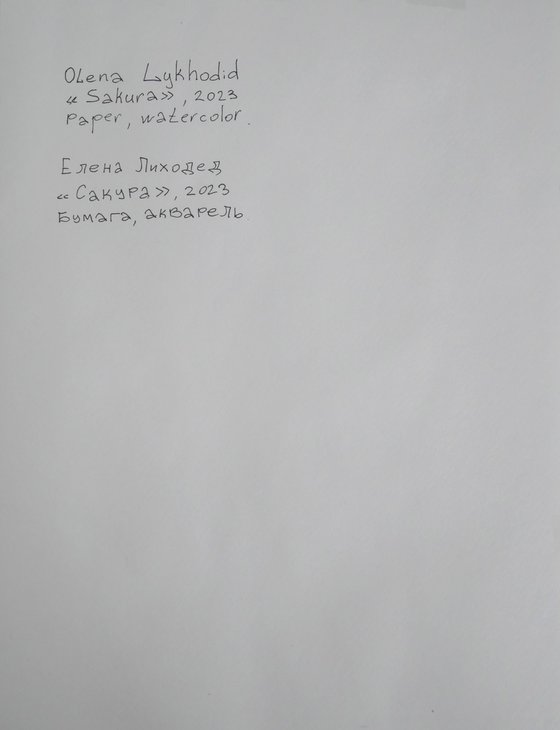 Olena Lykhodid
« Sakura» , 2023
Paper, watercolor.
Елена Лиходед
« Сакура », 2023
Бумага, акварель.